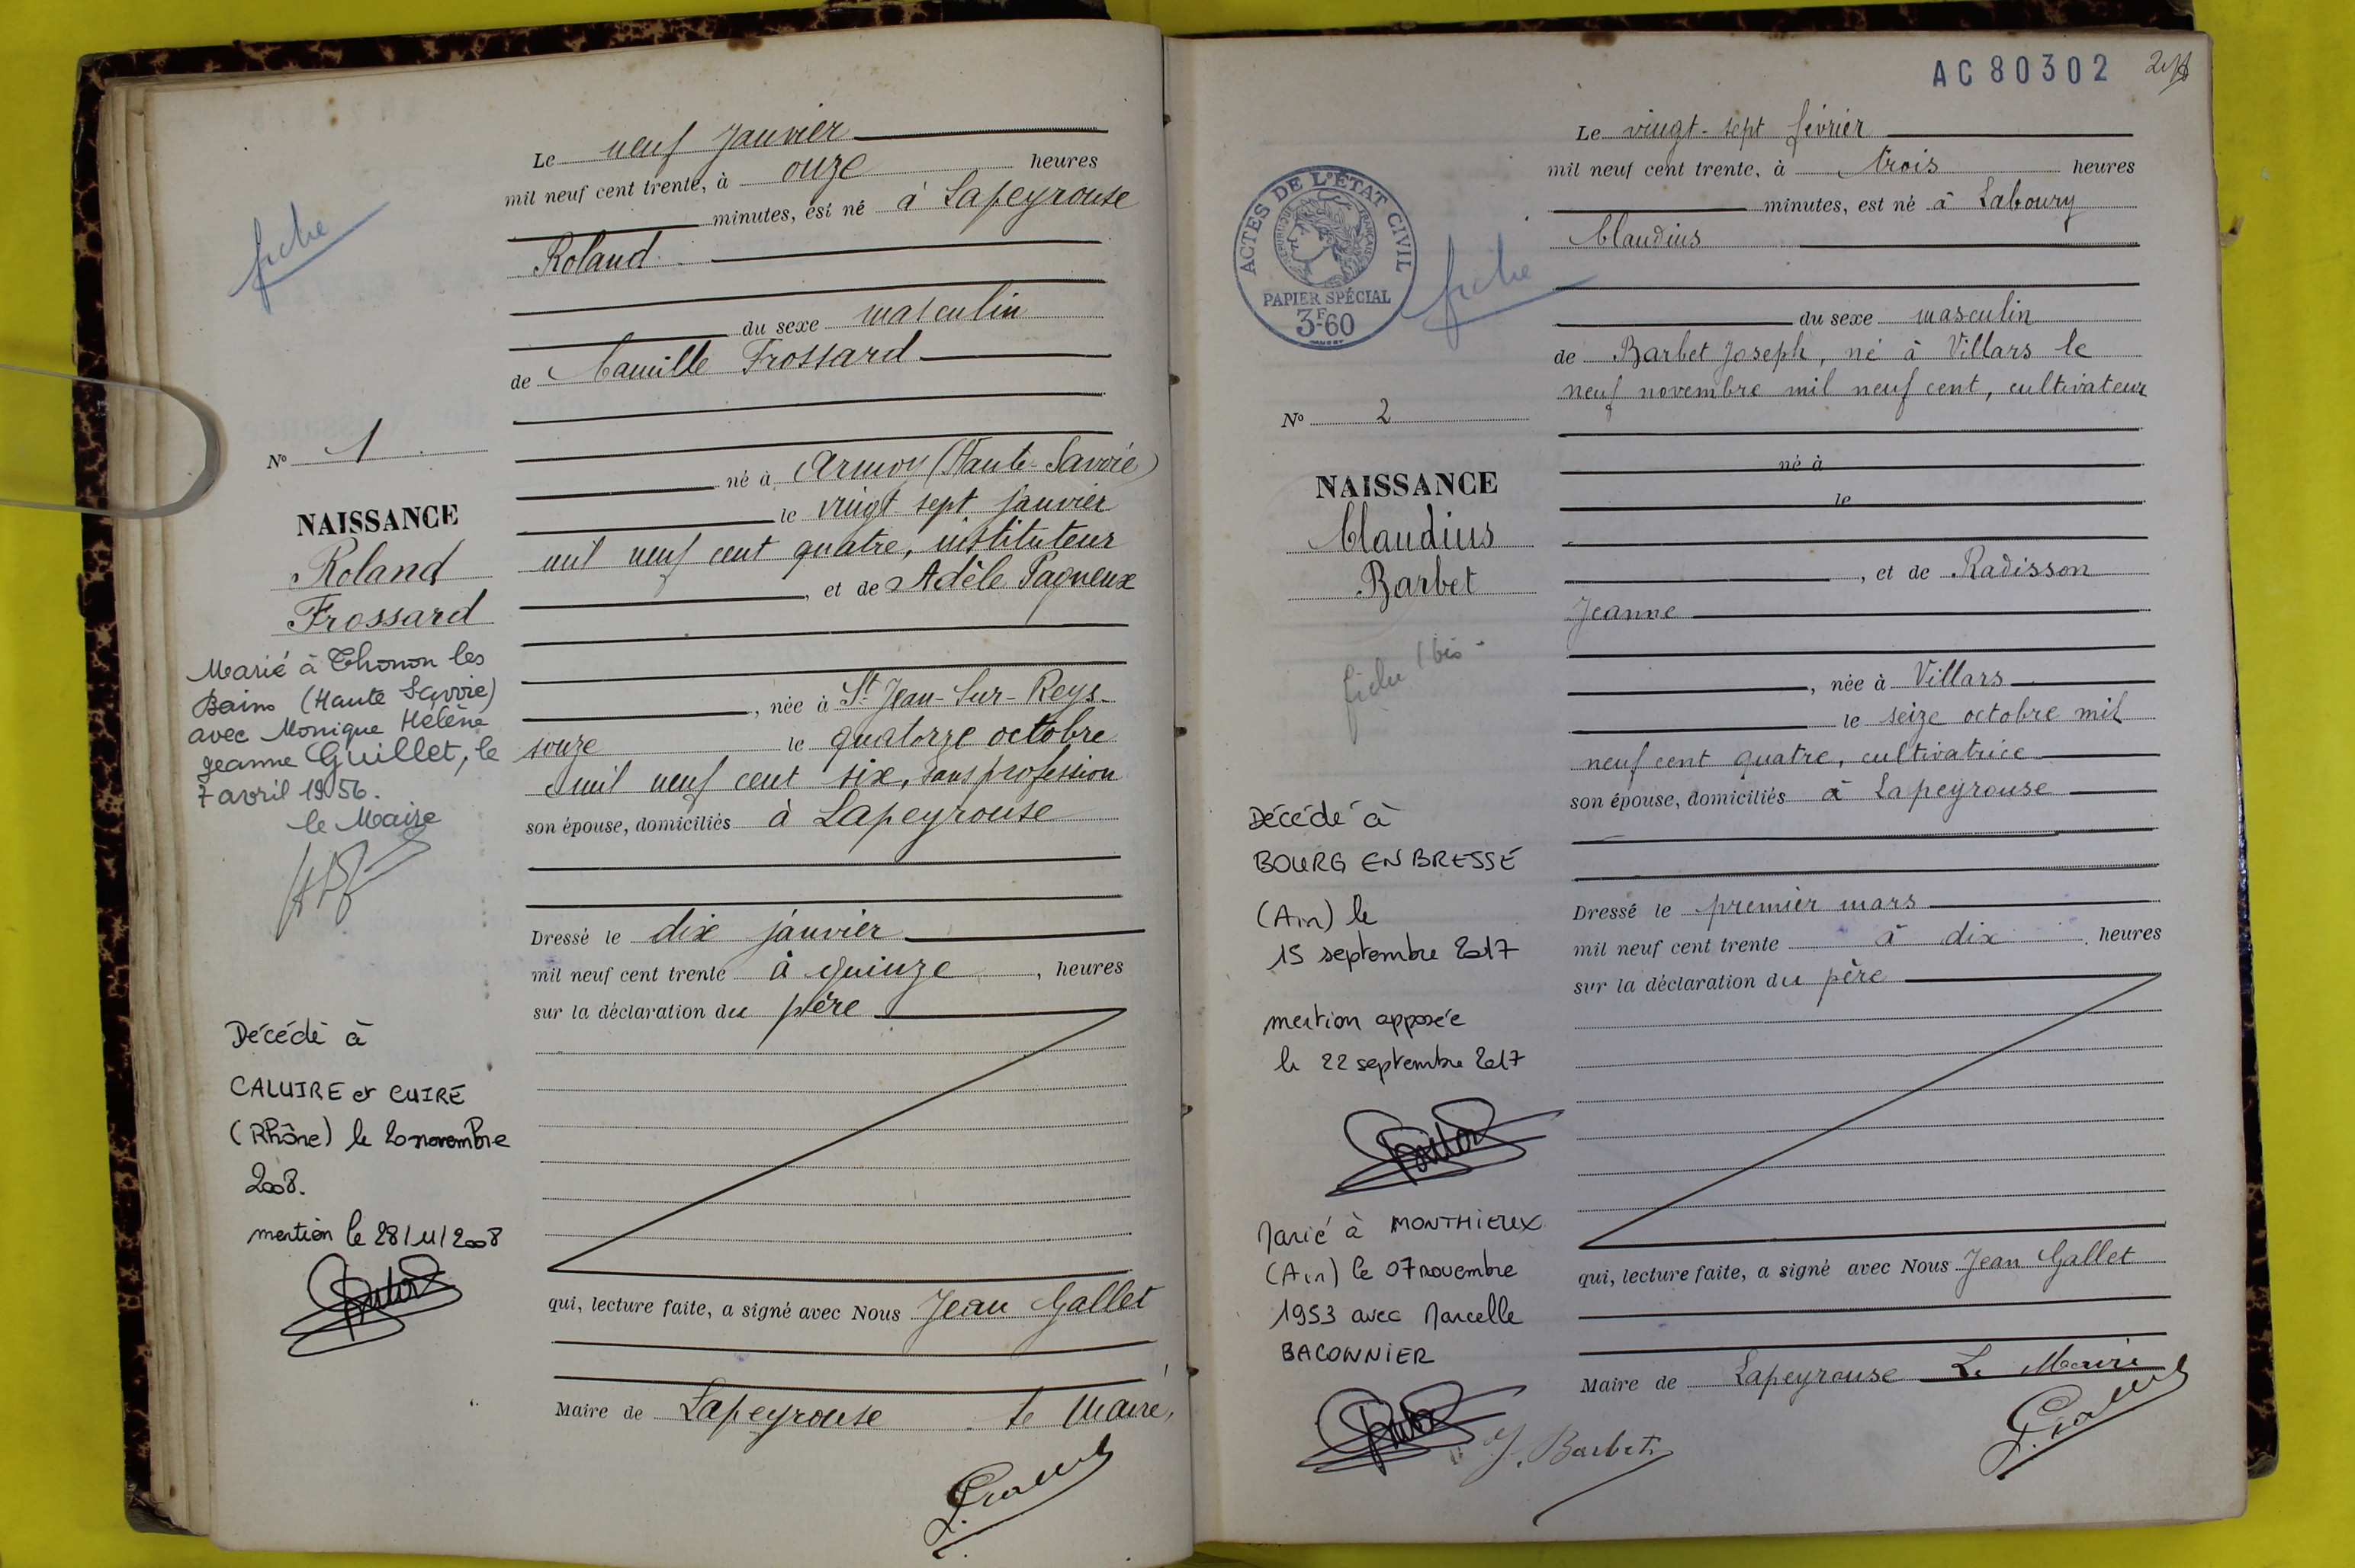 fiche
N° 1
NAISSANCE
Roland
Frossard
Marié à Thonon les
Bains (Haute Savoie)
avec Monique Hélène
Jeanne Guillet, le
7 avril 1956.
le Maire
Décédé à
CALUIRE et CUIRE
(Rhône) le 20 novembre
2008.
mention le 28/11/2008
Le neuf janvier
mil neuf cent trente, à onze heures
minutes, est né à Lapeyrouse
Roland
du sexe masculin
de Camille Frossard
né à Armoy (Haute-Savoie)
le vingt sept janvier
mil neuf cent quatre, instituteur
, et de Adèle Pagneux
, née à St Jean-Sur-Reys-
souze le quatorze octobre
mil neuf cent six, sans profession
son épouse, domiciliés à Lapeyrouse
Dressé le dix janvier
mil neuf cent trente à quinze , heures
sur la déclaration du père
qui, lecture faite, a signé avec Nous Jean Gallet
Maire de Lapeyrouse le Maire,
AC80302
ACTES DE L'ÉTAT CIVIL
RÉPUBLIQUE FRANÇAISE
PAPIER SPÉCIAL
3F-60
fiche
N° 2
NAISSANCE
Claudius
Barbet
bis
Décédé à
BOURG EN BRESSE
(Ain) le
15 septembre 2017
mention apposée
le 22 septembre 2017
Marié à MONTHIEUX
(Ain) le 07 novembre
1953 avec Marcelle
BACONNIER
Le vingt-sept février
mil neuf cent trente, à trois heures
minutes, est né à Laboury
Claudius
du sexe masculin
de Barbet Joseph, né à Villars le
neuf novembre mil neuf cent, cultivateur
né à
le
, et de Radisson
Jeanne
, née à Villars
le seize octobre mil
neuf cent quatre, cultivatrice
son épouse, domiciliés à Lapeyrouse
Dressé le premier mars
mil neuf cent trente à dix heures
sur la déclaration du père
qui, lecture faite, a signé avec Nous Jean Gallet
Maire de Lapeyrouse Le Maire
J. Barbet